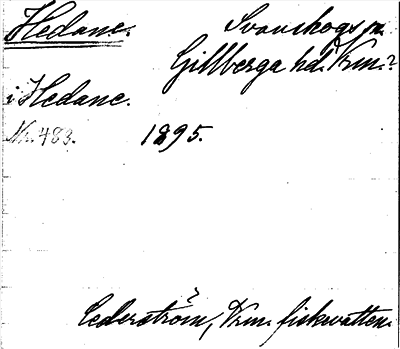 Hedane. Svanskogs sn.
Gillberga hd. Vrm.?
i Hedane.
Nr. 483. 1895.
Cederström, Vrm. fiskevatten.